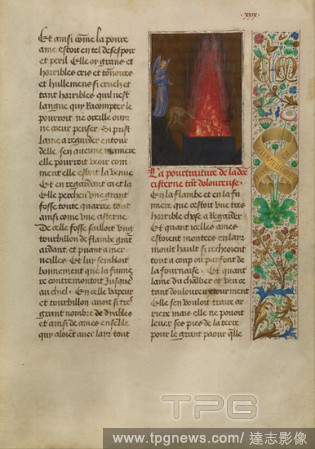 xxix
Et ainsi côme la poure
ame estoit en tel desespoir
et peril Elle oy grans et
horribles cris et tōnoires
et hullemens si cruelz et
tant horribles quil nest
langue qui racompter le
pourroit ne oreille ouir
ne coeur penser Si prist
lame a regarder entour
delle sen aucune maniere
elle pourroit veoir com
ment elle estoit la venue
Et en regardant ca et la
Elle percheu une grant
fosse quarree toute
ainsi comme une cisterne
De celle fosse sailloit ung
tourbillon de flambe grāt
ardant et puant a mer
veilles Et lui sembloit
bonnement que la fumee
contremontoit Jusques
au chiel En celle vapeur
et tourbillon avoit si tres
grant nombre de dyables
et ames ensemble
qui aloient avec lair tout
La pourtraiture de la dite
cisterne tāt doloureuse
En la flambe et en la fu
mee que estoit une tres
horrible chose a regarder
Et quant icelles ames
estoient montees en lair
moult hault si recheoient
tout a coup ou parfont de
la fournaise Et quant
lame du chevalier
tant douloureux tourment
Elle sen vouloit traire ar
riere mais elle ne pouoit
lever ses pies de la terre
pour le grant paour quelle
TPG
www.tpgnews.com/達志影像